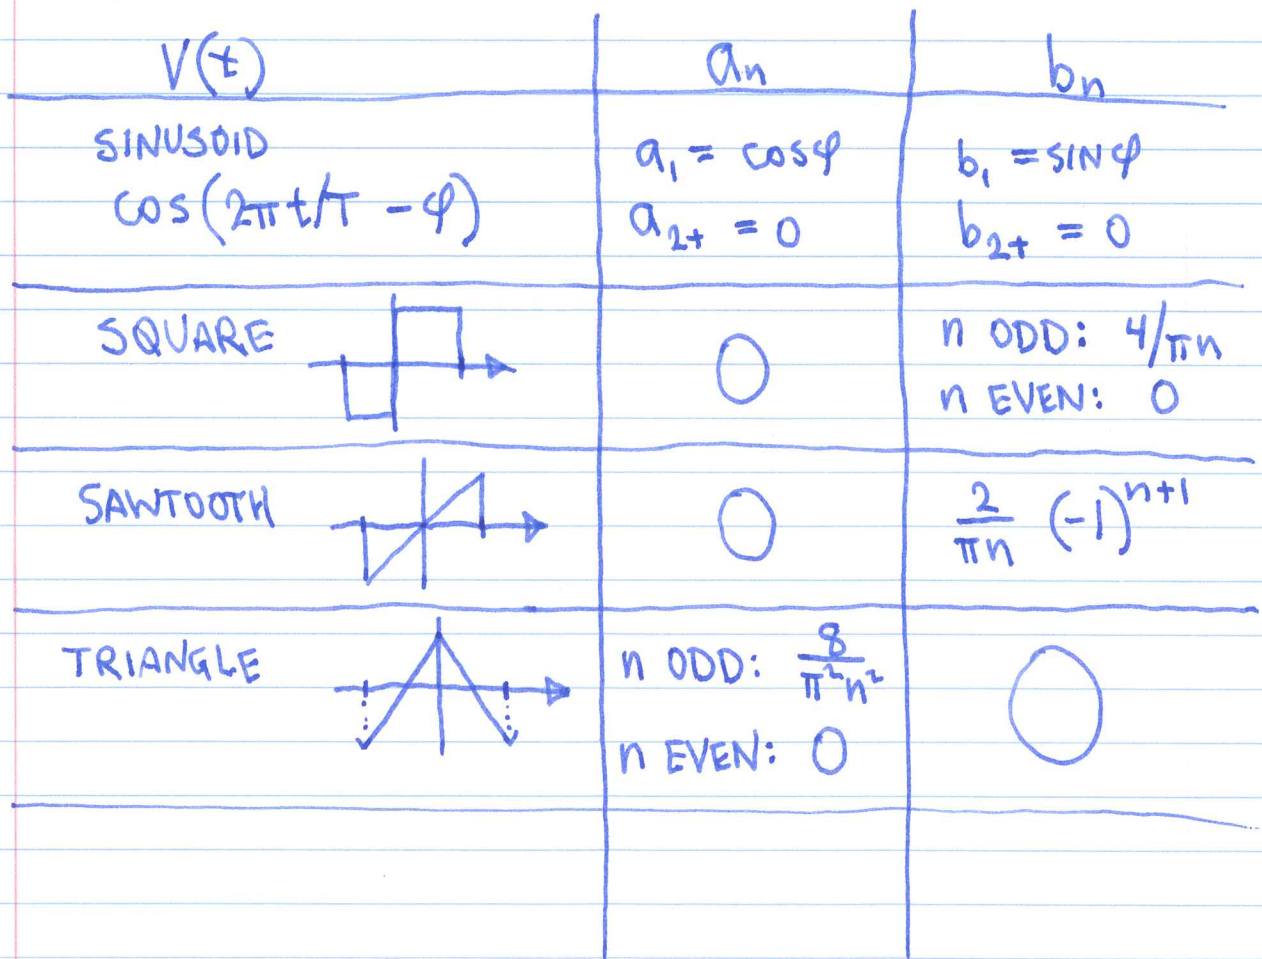 V(t) aₙ bₙ
SINUSOID
cos(2πt/T - φ)
a₁ = cosφ
a₂₊ = 0
b₁ = SINφ
b₂₊ = 0
SQUARE
0
n ODD: 4/πn
n EVEN: 0
SAWTOOTH
0
2/πn (-1)ⁿ⁺¹
TRIANGLE
n ODD: 8/π²n²
n EVEN: 0
0